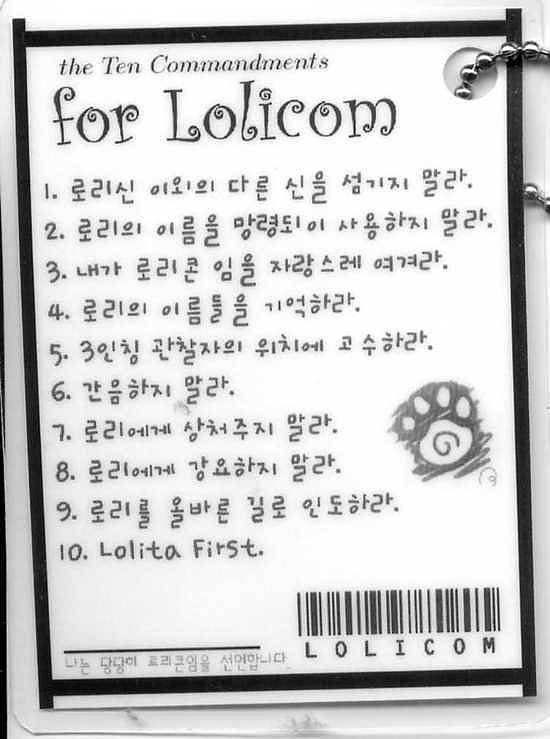 the Ten Commandments
for Lolicom
1. 로리신 이외의 다른 신을 섬기지 말라.
2. 로리의 이름을 망령되이 사용하지 말라.
3. 내가 로리콘 임을 자랑스레 여겨라.
4. 로리의 이름들을 기억하라.
5. 3인칭 관찰자의 위치에 고수하라.
6. 간음하지 말라.
7. 로리에게 상처주지 말라.
8. 로리에게 강요하지 말라.
9. 로리를 올바른 길로 인도하라.
10. Lolita First.
LOLICOM
나는 당당히 로리콘임을 선언합니다.